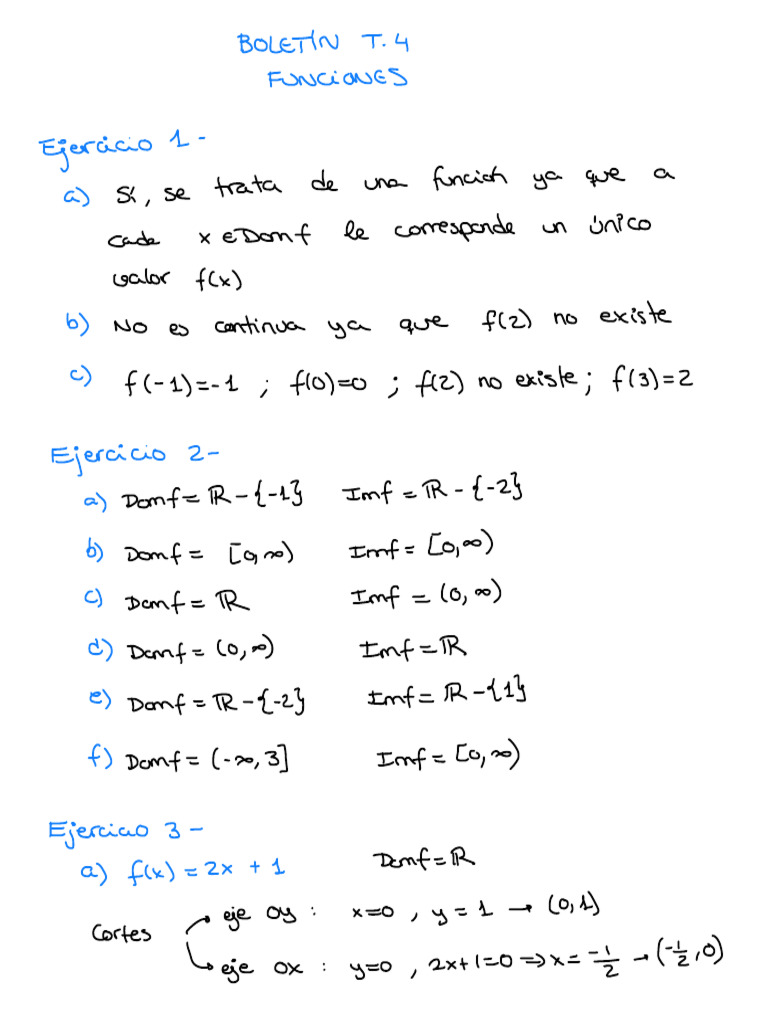 BOLETÍN T.4
FUNCIONES
Ejercicio 1-
a) Sí, se trata de una función ya que a
cada x ∈ Domf le corresponde un único
valor f(x)
b) No es continua ya que f(2) no existe
c) f(-1)=-1 ; f(0)=0 ; f(2) no existe; f(3)=2
Ejercicio 2-
a) Domf = ℝ-{-1} Imf = ℝ-{-2}
b) Domf = [0,∞) Imf = [0,∞)
c) Domf = ℝ Imf = (0,∞)
d) Domf = (0,∞) Imf = ℝ
e) Domf = ℝ-{-2} Imf = ℝ-{1}
f) Domf = (-∞,3] Imf = [0,∞)
Ejercicio 3-
a) f(x) = 2x + 1 Domf = ℝ
Cortes
→ eje oy : x=0 , y = 1 → (0,1)
→ eje ox : y=0 , 2x+1=0 ⇒ x = -1/2 → (-1/2,0)